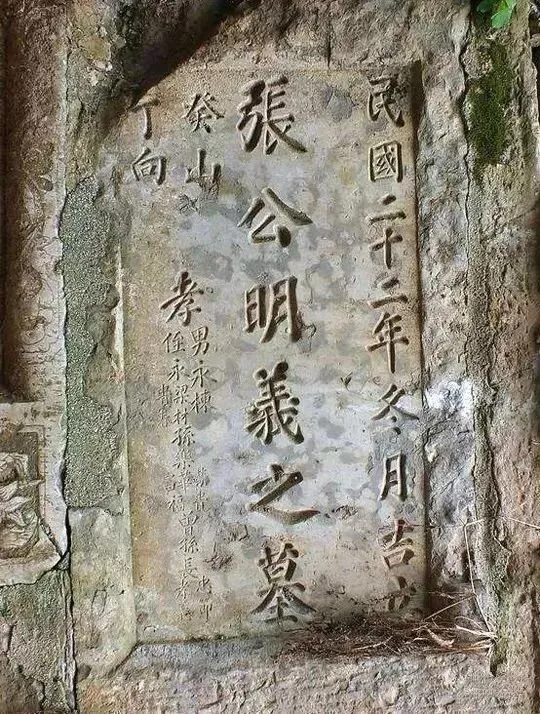 民國二十二年冬月吉
張公明義之墓
癸山
丁向
孝
男永棟
侄永梁
孫
曾孫長